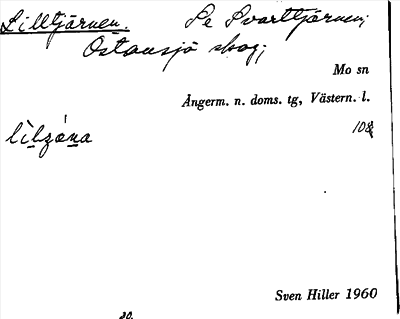 Lilltjärnen. Se Svarttjärnen;
Östansjö skog;
Mo sn
Ångerm. n. doms. tg, Västern. l.
108
Sven Hiller 1960
20.